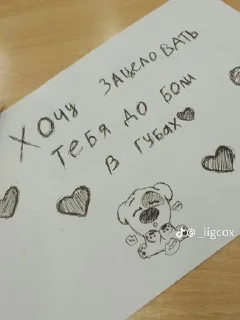 Хочу зацеловать
тебя до боли
в губах
@_ligcox